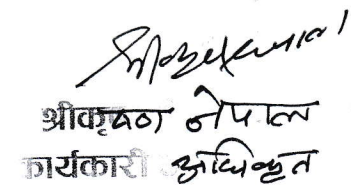 श्रीकृष्ण नेपाल
कार्यकारी अधिकृत